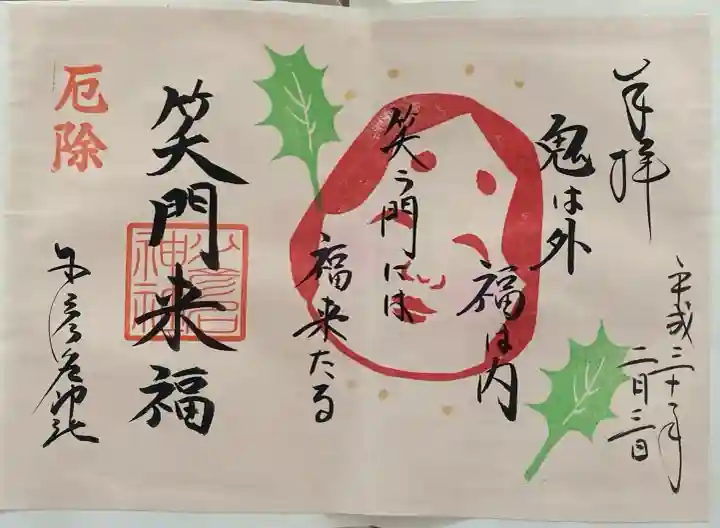 奉拝
平成三十一年
二月三日
鬼は外
福は内
笑う門には
福来たる
笑門来福
厄除
少彦名神社
少彦名
神社